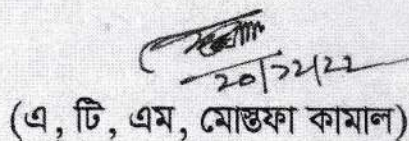 ২০/১২/২২
(এ, টি, এম, মোস্তফা কামাল)